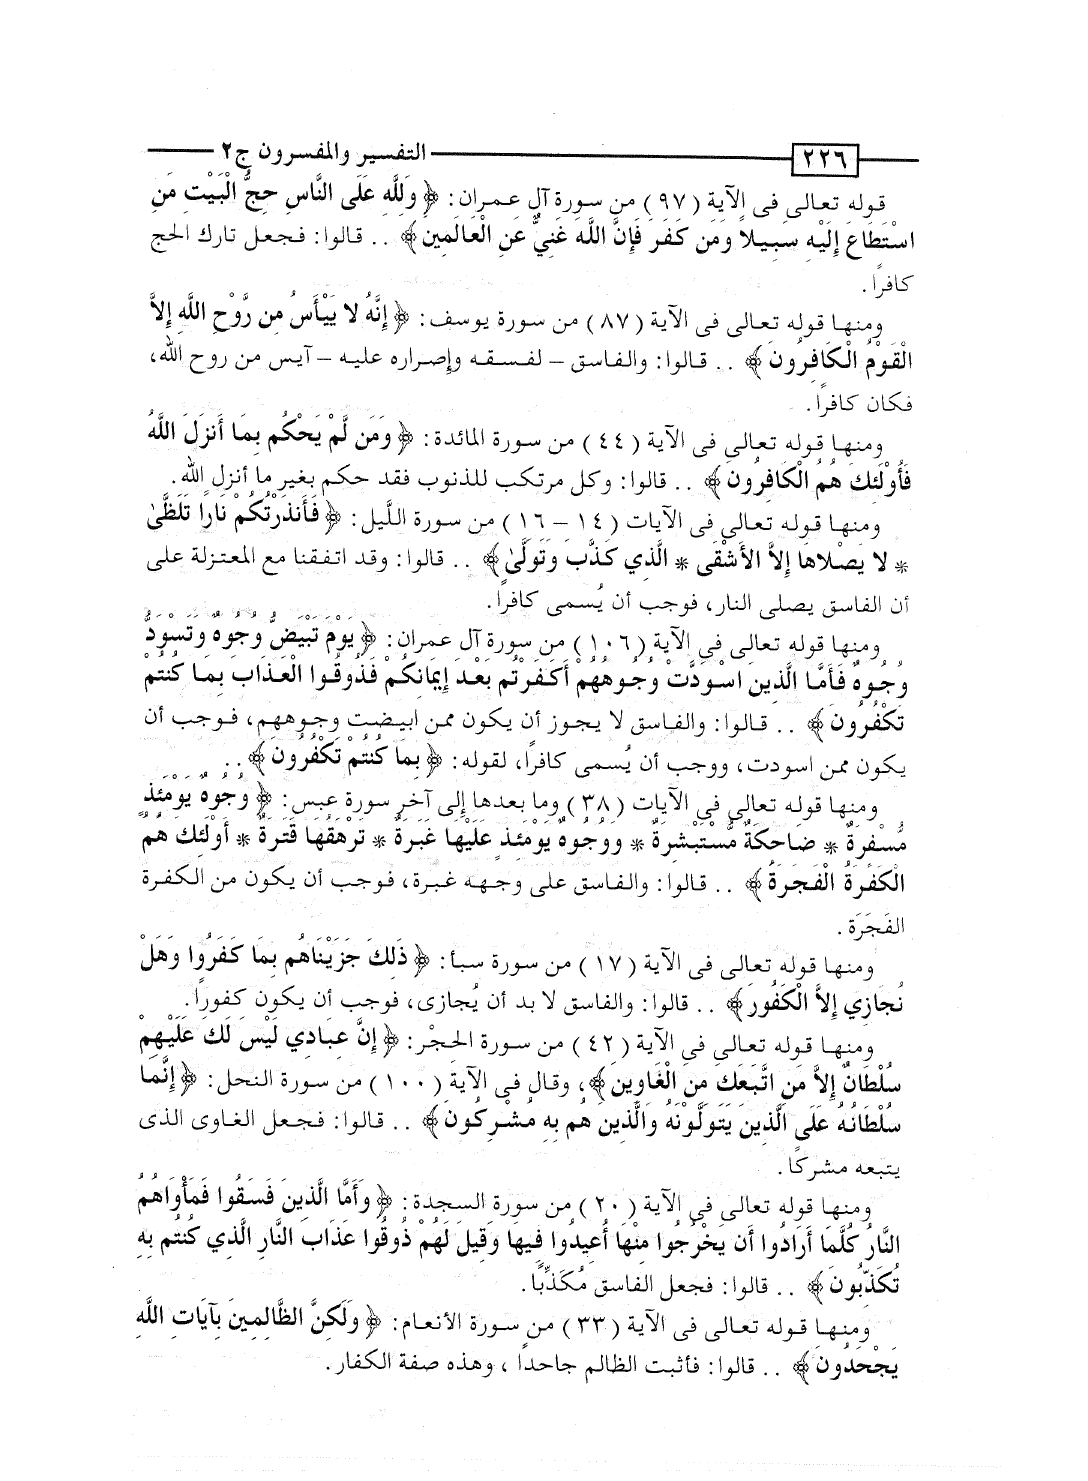 ٢٢٦ التفسير والمفسرون ج٢
قوله تعالى فى الآية (٩٧) من سورة آل عمران: ﴿ وَلِلَّهِ عَلَى النَّاسِ حِجُّ الْبَيْتِ مَنِ
اسْتَطَاعَ إِلَيْهِ سَبِيلاً وَمَن كَفَرَ فَإِنَّ اللَّهَ غَنِيٌّ عَنِ الْعَالَمِين﴾ .. قالوا: فجعل تارك الحج
كافراً.
ومنها قوله تعالى فى الآية (٨٧) من سورة يوسف: ﴿ إِنَّهُ لا يَيْأَسُ مِن رَّوْحِ اللَّهِ إِلاَّ
الْقَوْمُ الْكَافِرُون﴾ .. قالوا: والفاسق – لفسقه وإصراره عليه – آيس من روح الله،
فكان كافراً.
ومنها قوله تعالى فى الآية (٤٤) من سورة المائدة: ﴿ وَمَن لَّمْ يَحْكُم بِمَا أَنزَلَ اللَّهُ
فَأُوْلَئِكَ هُمُ الْكَافِرُون﴾ .. قالوا: وكل مرتكب للذنوب فقد حكم بغير ما أنزل الله.
ومنها قوله تعالى فى الآيات (١٤ – ١٦) من سورة الليل: ﴿ فَأَنذَرْتُكُمْ نَارًا تَلَظَّىٰ
* لا يَصْلاهَا إِلاَّ الأَشْقَى * الَّذِي كَذَّبَ وَتَوَلَّىٰ﴾ .. قالوا: وقد اتفقنا مع المعتزلة على
أن الفاسق يصلى النار، فوجب أن يُسمى كافراً.
ومنها قوله تعالى فى الآية (١٠٦) من سورة آل عمران: ﴿ يَوْمَ تَبْيَضُّ وُجُوهٌ وَتَسْوَدُّ
وُجُوهٌ فَأَمَّا الَّذِينَ اسْوَدَّتْ وُجُوهُهُمْ أَكَفَرْتُم بَعْدَ إِيمَانِكُمْ فَذُوقُوا الْعَذَابَ بِمَا كُنتُمْ
تَكْفُرُونَ﴾ .. قالوا: والفاسق لا يجوز أن يكون ممن ابيضت وجوههم، فوجب أن
يكون ممن اسودت، ووجب أن يُسمى كافراً، لقوله: ﴿ بِمَا كُنتُمْ تَكْفُرُونَ﴾ ..
ومنها قوله تعالى فى الآيات (٣٨) وما بعدها إلى آخر سورة عبس: ﴿ وُجُوهٌ يَوْمَئِذٍ
مُّسْفِرَةٌ * ضَاحِكَةٌ مُّسْتَبْشِرَةٌ * وَوُجُوهٌ يَوْمَئِذٍ عَلَيْهَا غَبَرَةٌ * تَرْهَقُهَا قَتَرَةٌ * أُوْلَئِكَ هُمُ
الْكَفَرَةُ الْفَجَرَةُ﴾ .. قالوا: والفاسق على وجهه غبرة، فوجب أن يكون من الكفرة
الفَجَرَة.
ومنها قوله تعالى فى الآية (١٧) من سورة سبأ: ﴿ ذَلِكَ جَزَيْنَاهُم بِمَا كَفَرُوا وَهَلْ
نُجَازِي إِلاَّ الْكَفُورَ﴾ .. قالوا: والفاسق لا بد أن يُجازى، فوجب أن يكون كفوراً.
ومنها قوله تعالى فى الآية (٤٢) من سورة الحجْر: ﴿ إِنَّ عِبَادِي لَيْسَ لَكَ عَلَيْهِمْ
سُلْطَانٌ إِلاَّ مَنِ اتَّبَعَكَ مِنَ الْغَاوِين﴾، وقال فى الآية (١٠٠) من سورة النحل: ﴿ إِنَّمَا
سُلْطَانُهُ عَلَى الَّذِينَ يَتَوَلَّوْنَهُ وَالَّذِينَ هُم بِهِ مُشْرِكُونَ﴾ .. قالوا: فجعل الغاوى الذى
يتبعه مشركًا.
ومنها قوله تعالى فى الآية (٢٠) من سورة السجدة: ﴿ وَأَمَّا الَّذِينَ فَسَقُوا فَمَأْوَاهُمُ
النَّارُ كُلَّمَا أَرَادُوا أَن يَخْرُجُوا مِنْهَا أُعِيدُوا فِيهَا وَقِيلَ لَهُمْ ذُوقُوا عَذَابَ النَّارِ الَّذِي كُنتُم بِهِ
تُكَذِّبُونَ﴾ .. قالوا: فجعل الفاسق مُكَذِّبًا.
ومنها قوله تعالى فى الآية (٣٣) من سورة الأنعام: ﴿ وَلَكِنَّ الظَّالِمِينَ بِآيَاتِ اللَّهِ
يَجْحَدُونَ﴾ .. قالوا: فأثبت الظالم جاحداً ، وهذه صفة الكفار.